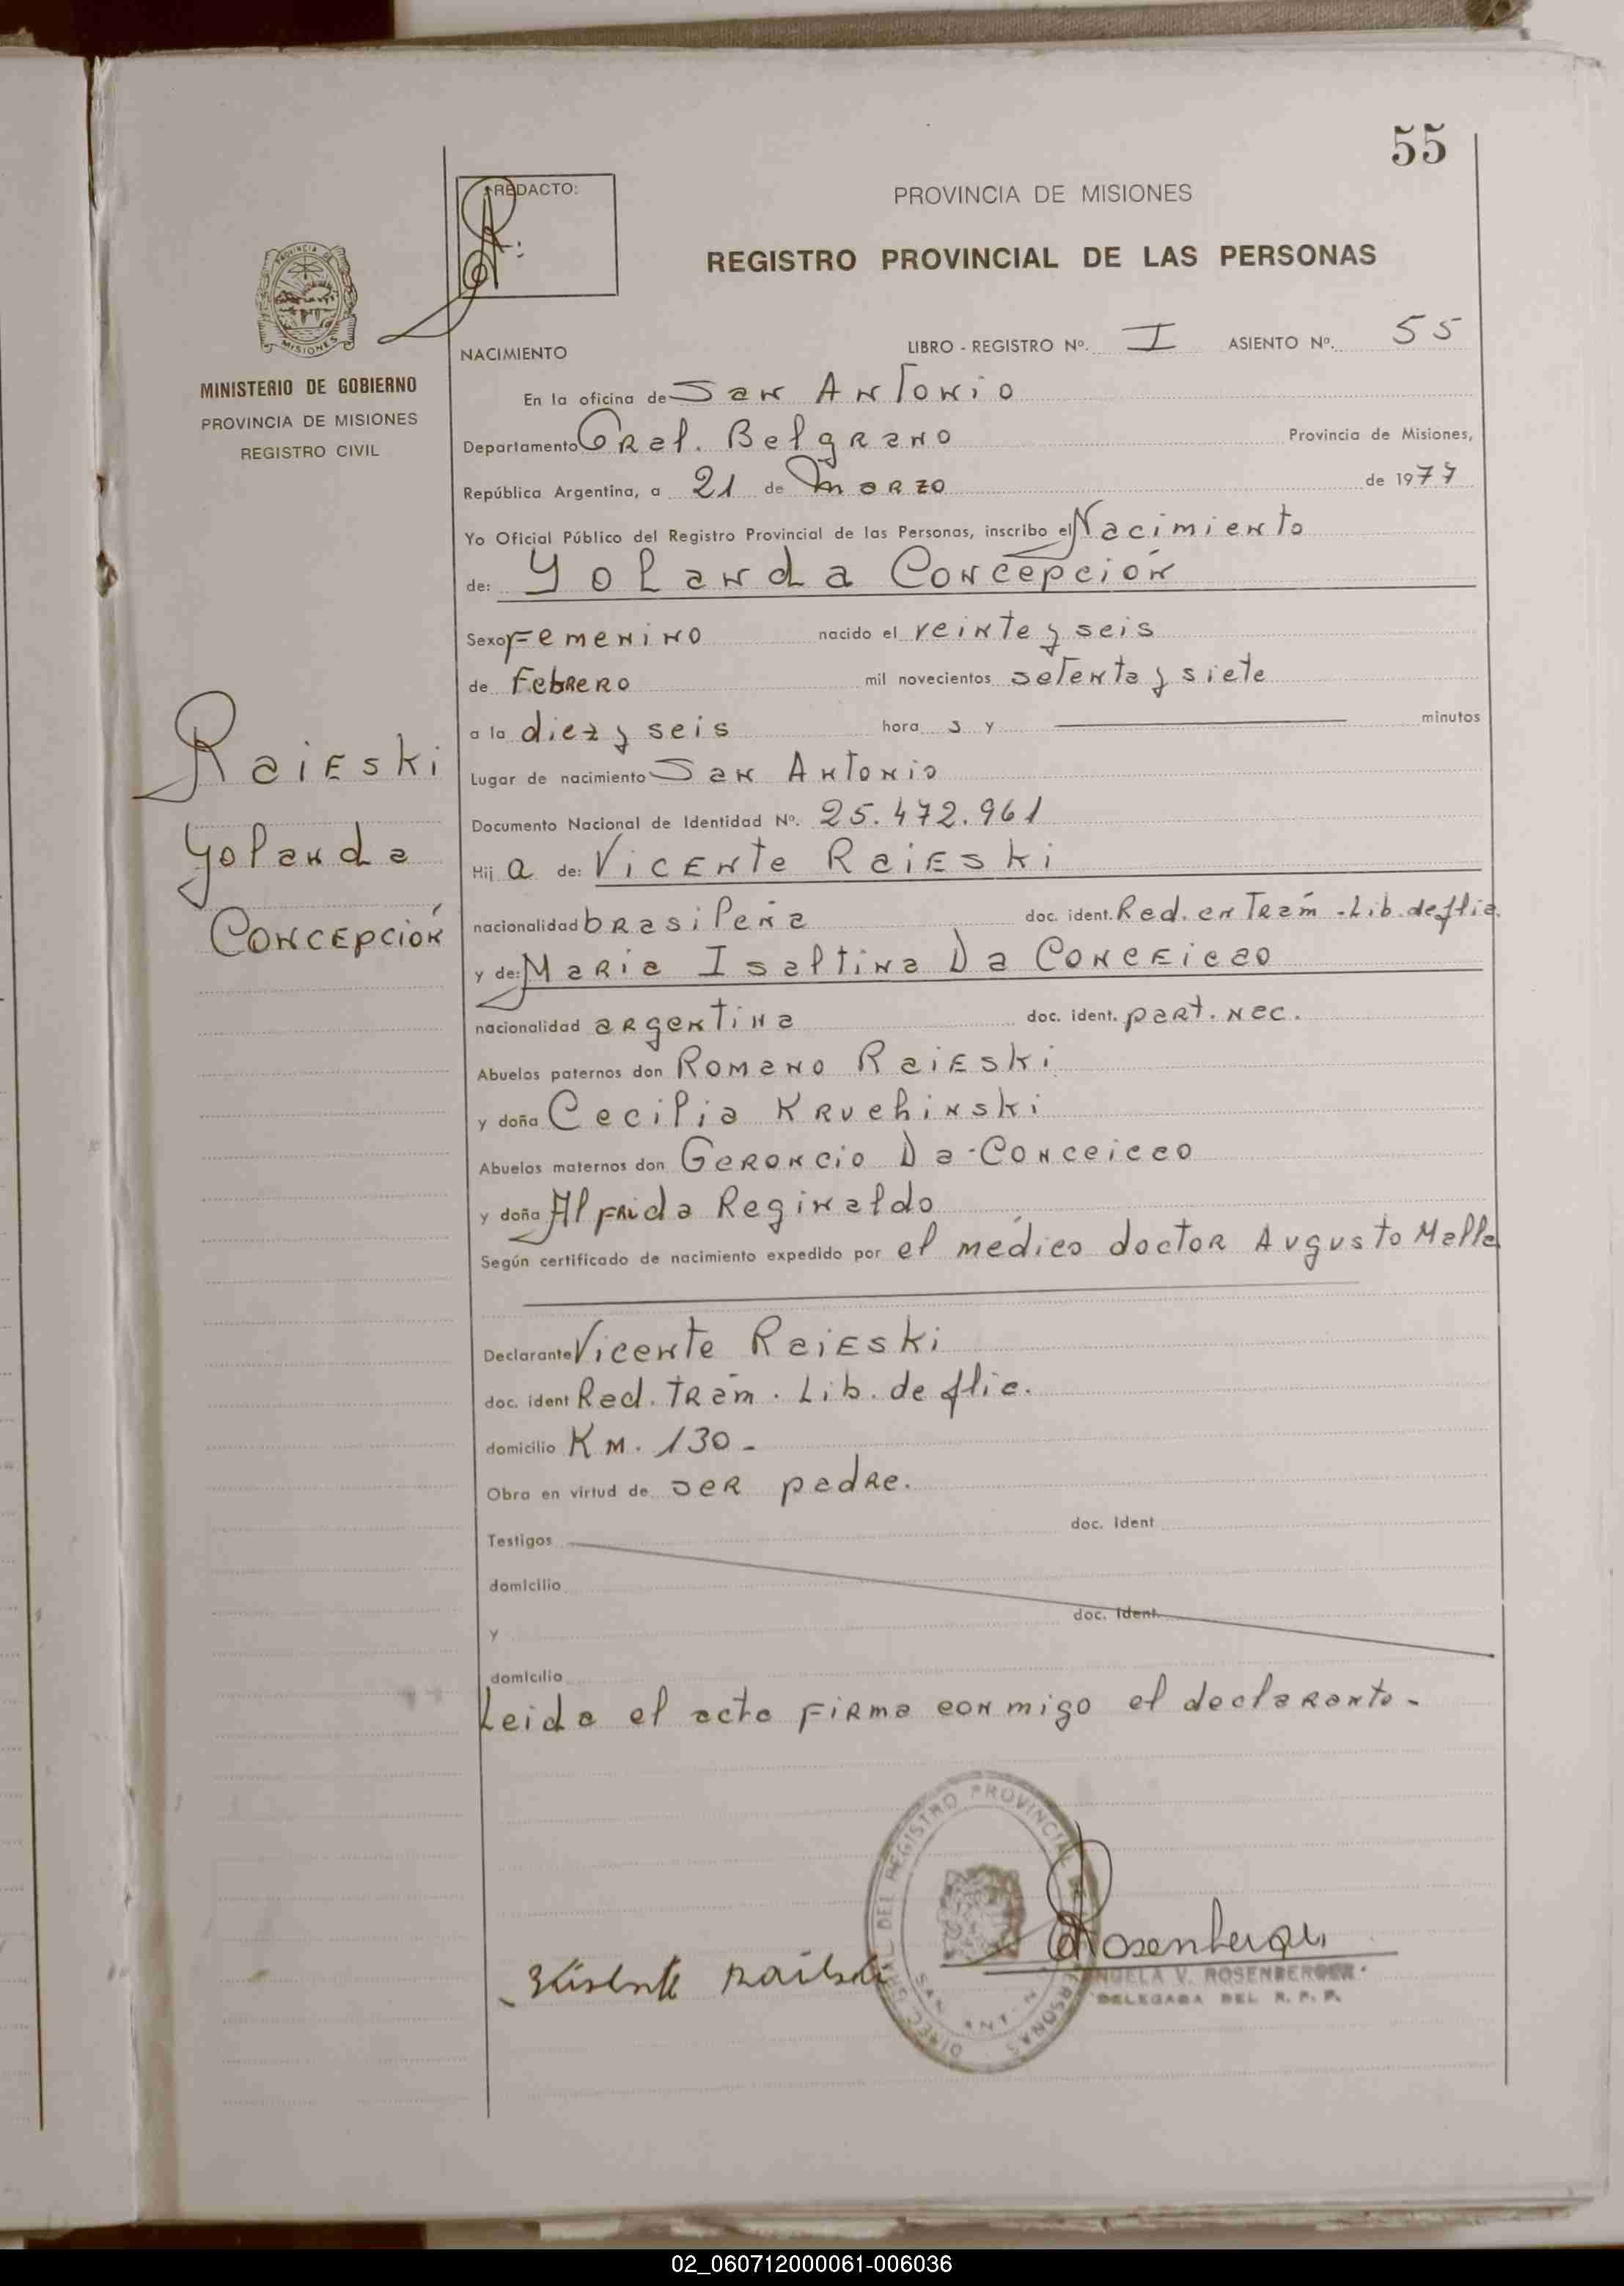 55
REDACTO:
PROVINCIA DE MISIONES
REGISTRO PROVINCIAL DE LAS PERSONAS
PROVINCIA DE
MISIONES
MINISTERIO DE GOBIERNO
PROVINCIA DE MISIONES
REGISTRO CIVIL
NACIMIENTO
LIBRO - REGISTRO Nº. I ASIENTO Nº. 55
En la oficina de San Antonio
Departamento Gral. Belgrano Provincia de Misiones,
República Argentina, a 21 de Marzo de 1977
Yo Oficial Público del Registro Provincial de las Personas, inscribo el Nacimiento
de: Yolanda Concepción
Sexo Femenino nacido el veinte y seis
de Febrero mil novecientos setenta y siete
a la diez y seis hora s y minutos
Raieski
Yolanda
Concepción
Lugar de nacimiento San Antonio
Documento Nacional de Identidad Nº. 25.472.961
Hij a de: Vicente Raieski
nacionalidad brasileña doc. ident. Red. en Trám. Lib. de flia.
y de: Maria Isaltina Da Conceicao
nacionalidad argentina doc. ident. part. nec.
Abuelos paternos don Romano Raieski
y doña Cecilia Kruchinski
Abuelos maternos don Geroncio Da-Conceicao
y doña Alfrida Reginaldo
Según certificado de nacimiento expedido por el médico doctor Augusto Malle
Declarante Vicente Raieski
doc. ident Red. Trám. Lib. de flia.
domicilio Km. 130 -
Obra en virtud de ser padre.
Testigos doc. Ident
domicilio
y doc. Ident.
domicilio
Leida el acta firma conmigo el declarante -
DIREC. GRAL. DEL REGISTRO PROVINCIAL DE PERSONAS
SAN ANT N
Rosenberger
NUELA V. ROSENBERGER
DELEGADA DEL R. P. P.
02_060712000061-006036